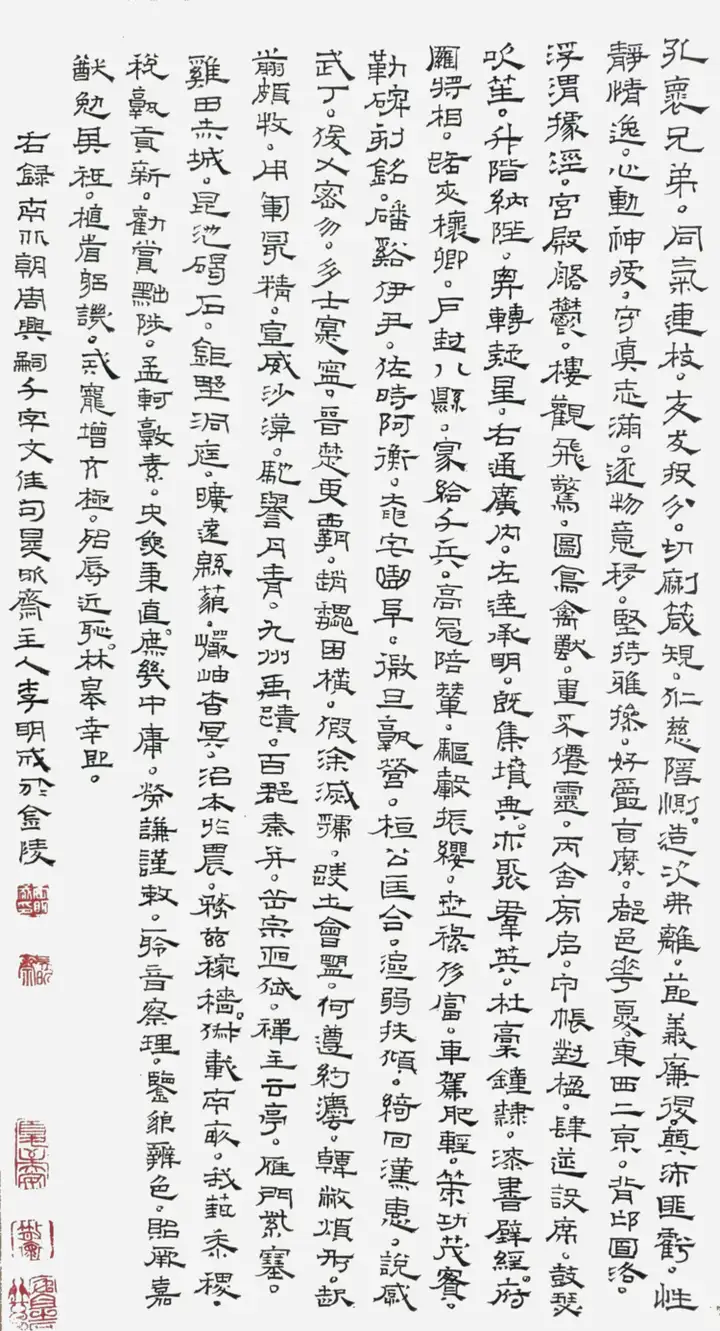 孔懷兄弟。同氣連枝。交友投分。切劘箴規。仁慈隱惻。造次弗離。節義廉退。顛沛匪虧。性
靜情逸。心動神疲。守真志滿。逐物意移。堅持雅操。好爵自縻。都邑華夏。東西二京。背邙面洛。
浮渭據涇。宮殿盤鬱。樓觀飛驚。圖寫禽獸。畫采僊靈。丙舍房启。甲帳對楹。肆筵設席。鼓瑟
吹笙。升階納陛。弁轉疑星。右通廣內。左達承明。既集墳典。亦聚羣英。杜稾鐘隸。漆書壁經。府
羅將相。路夾槐卿。戶封八縣。家給千兵。高冠陪輦。驅轂振纓。世祿侈富。車駕肥輕。策功茂實。
勒碑刻銘。磻谿伊尹。佐時阿衡。奄宅曲阜。微旦孰營。桓公匡合。濟弱扶傾。綺回漢惠。說感
武丁。俊乂密勿。多士寔寧。晉楚更霸。趙魏困橫。假途滅虢。踐土會盟。何遵約灋。韓敝煩刑。起
翦頗牧。用軍最精。宣威沙漠。馳譽丹青。九州禹蹟。百郡秦并。岳宗恒岱。禪主云亭。雁門紫塞。
雞田赤城。昆池碣石。鉅野洞庭。曠遠緜藐。巖岫杳冥。治本於農。務茲稼穡。俶載南畝。我藝黍稷。
稅孰貢新。勸賞黜陟。孟軻敦素。史魚秉直。庶幾中庸。勞謙謹敕。聆音察理。鑒貌辨色。貽厥嘉
猷。勉其祗植。省躬譏誡。寵增亢極。殆辱近恥。林皋幸即。
右錄南北朝周興嗣千字文佳句 齋主人李明成於金陵